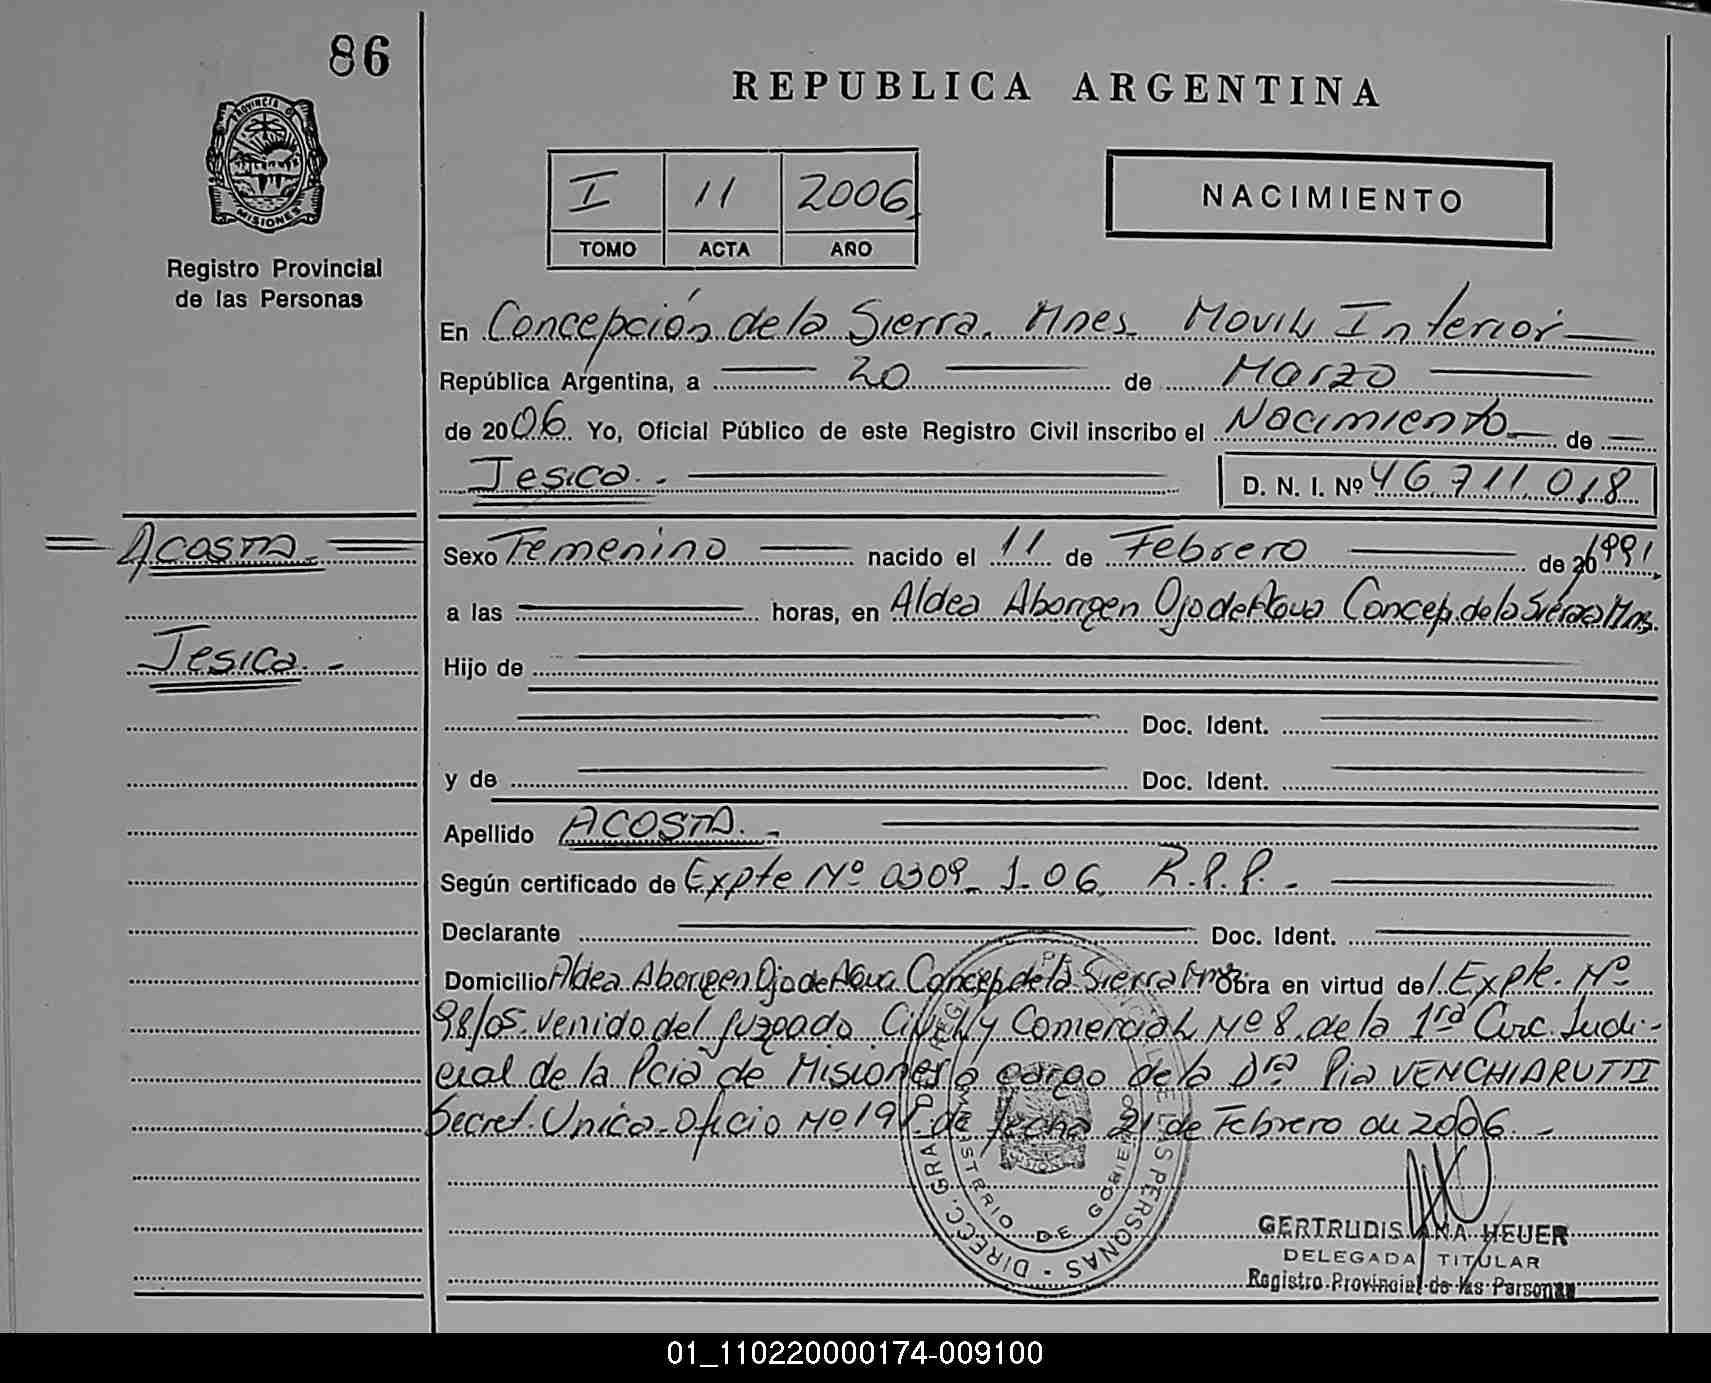 86
PROVINCIA DE
MISIONES
Registro Provincial
de las Personas
REPUBLICA ARGENTINA
I 11 2006
TOMO ACTA AÑO
NACIMIENTO
En Concepción de la Sierra. Mnes. Movil Interior
República Argentina, a 20 de Marzo
de 2006 Yo, Oficial Público de este Registro Civil inscribo el Nacimiento de
Jesica.- D. N. I. Nº 46.711.018
Acosta.
Sexo Femenino nacido el 11 de Febrero de 20 1991,
a las horas, en Aldea Aborigen Ojo de Agua Concep. de la Sierra Mns.
Jesica.-
Hijo de
Doc. Ident.
y de Doc. Ident.
Apellido ACOSTA.-
Según certificado de Expte Nº 0309-1-06, R.P.P.-
Declarante Doc. Ident.
Domicilio Aldea Aborigen Ojo de Agua Concep. de la Sierra Mns Obra en virtud del Expte. Nº
98/05. venido del Juzgado Civil y Comercial Nº 8. de la 1ra Circ. Judi-
cial de la Pcia de Misiones a cargo de la Dra Pia VENCHIARUTTI
Secret. Unica. Oficio Nº 191. de fecha 21 de Febrero de 2006.-
MINISTERIO DE GOBIERNO
GERTRUDIS ANA HEUER
DELEGADA TITULAR
Registro Provincial de las Personas
01_110220000174-009100